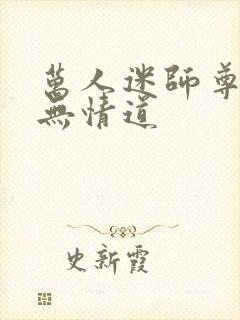 萬人迷師尊
無情道
史新霞